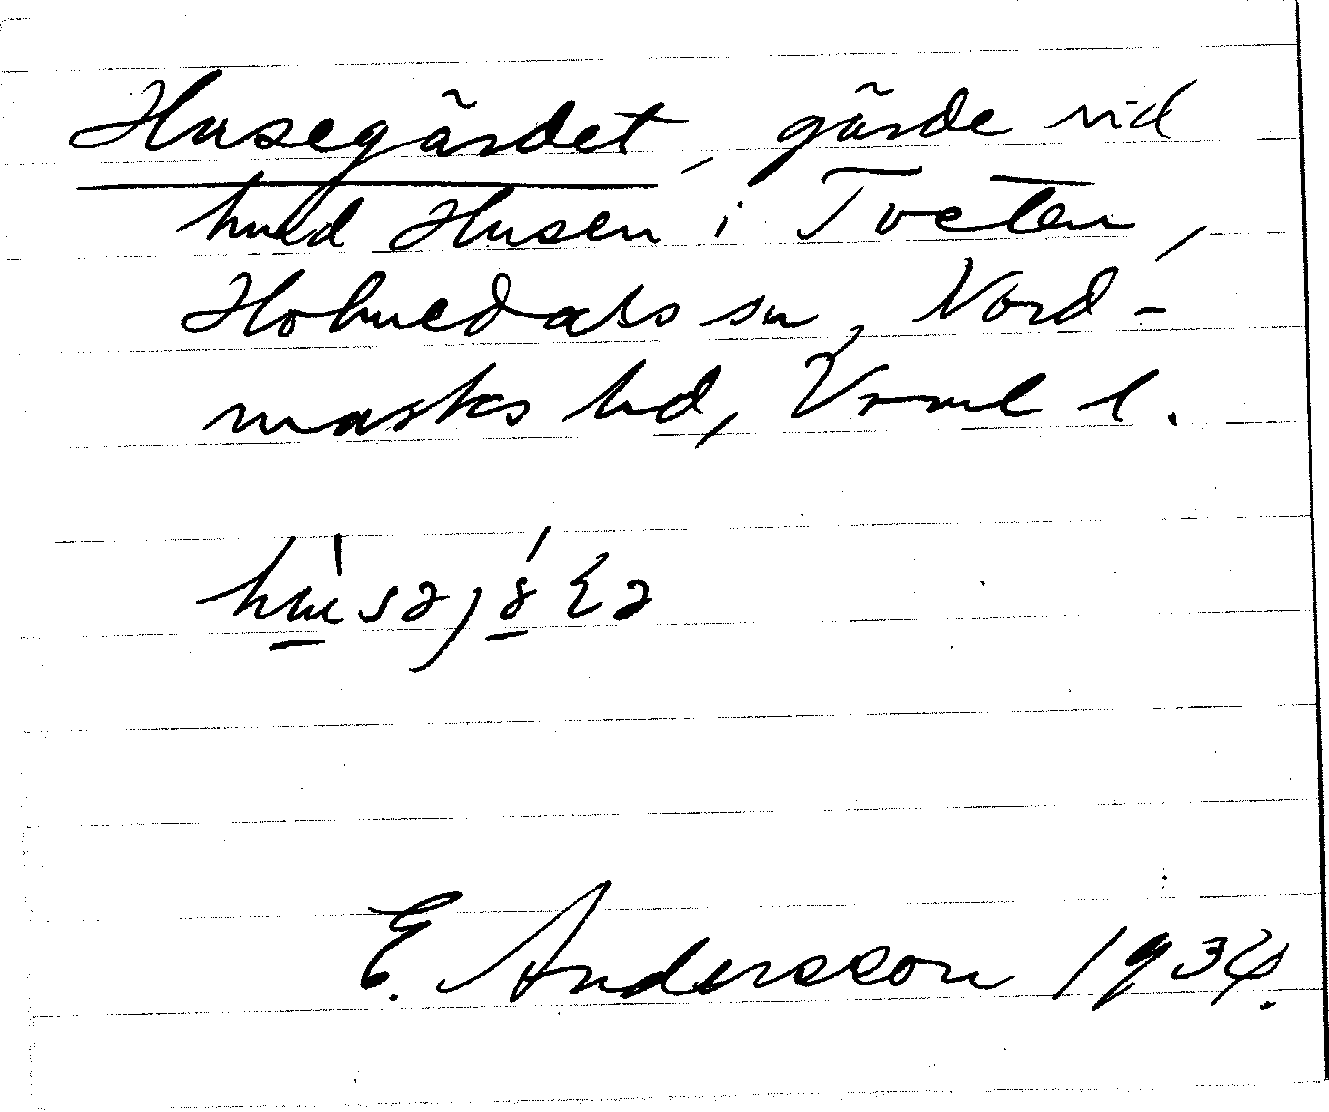 Husegärdet, gärde vid
hmd Husen i Tveten,
Holmedals sn, Nord-
marks hd, Vrml l.
E. Andersson 1934.